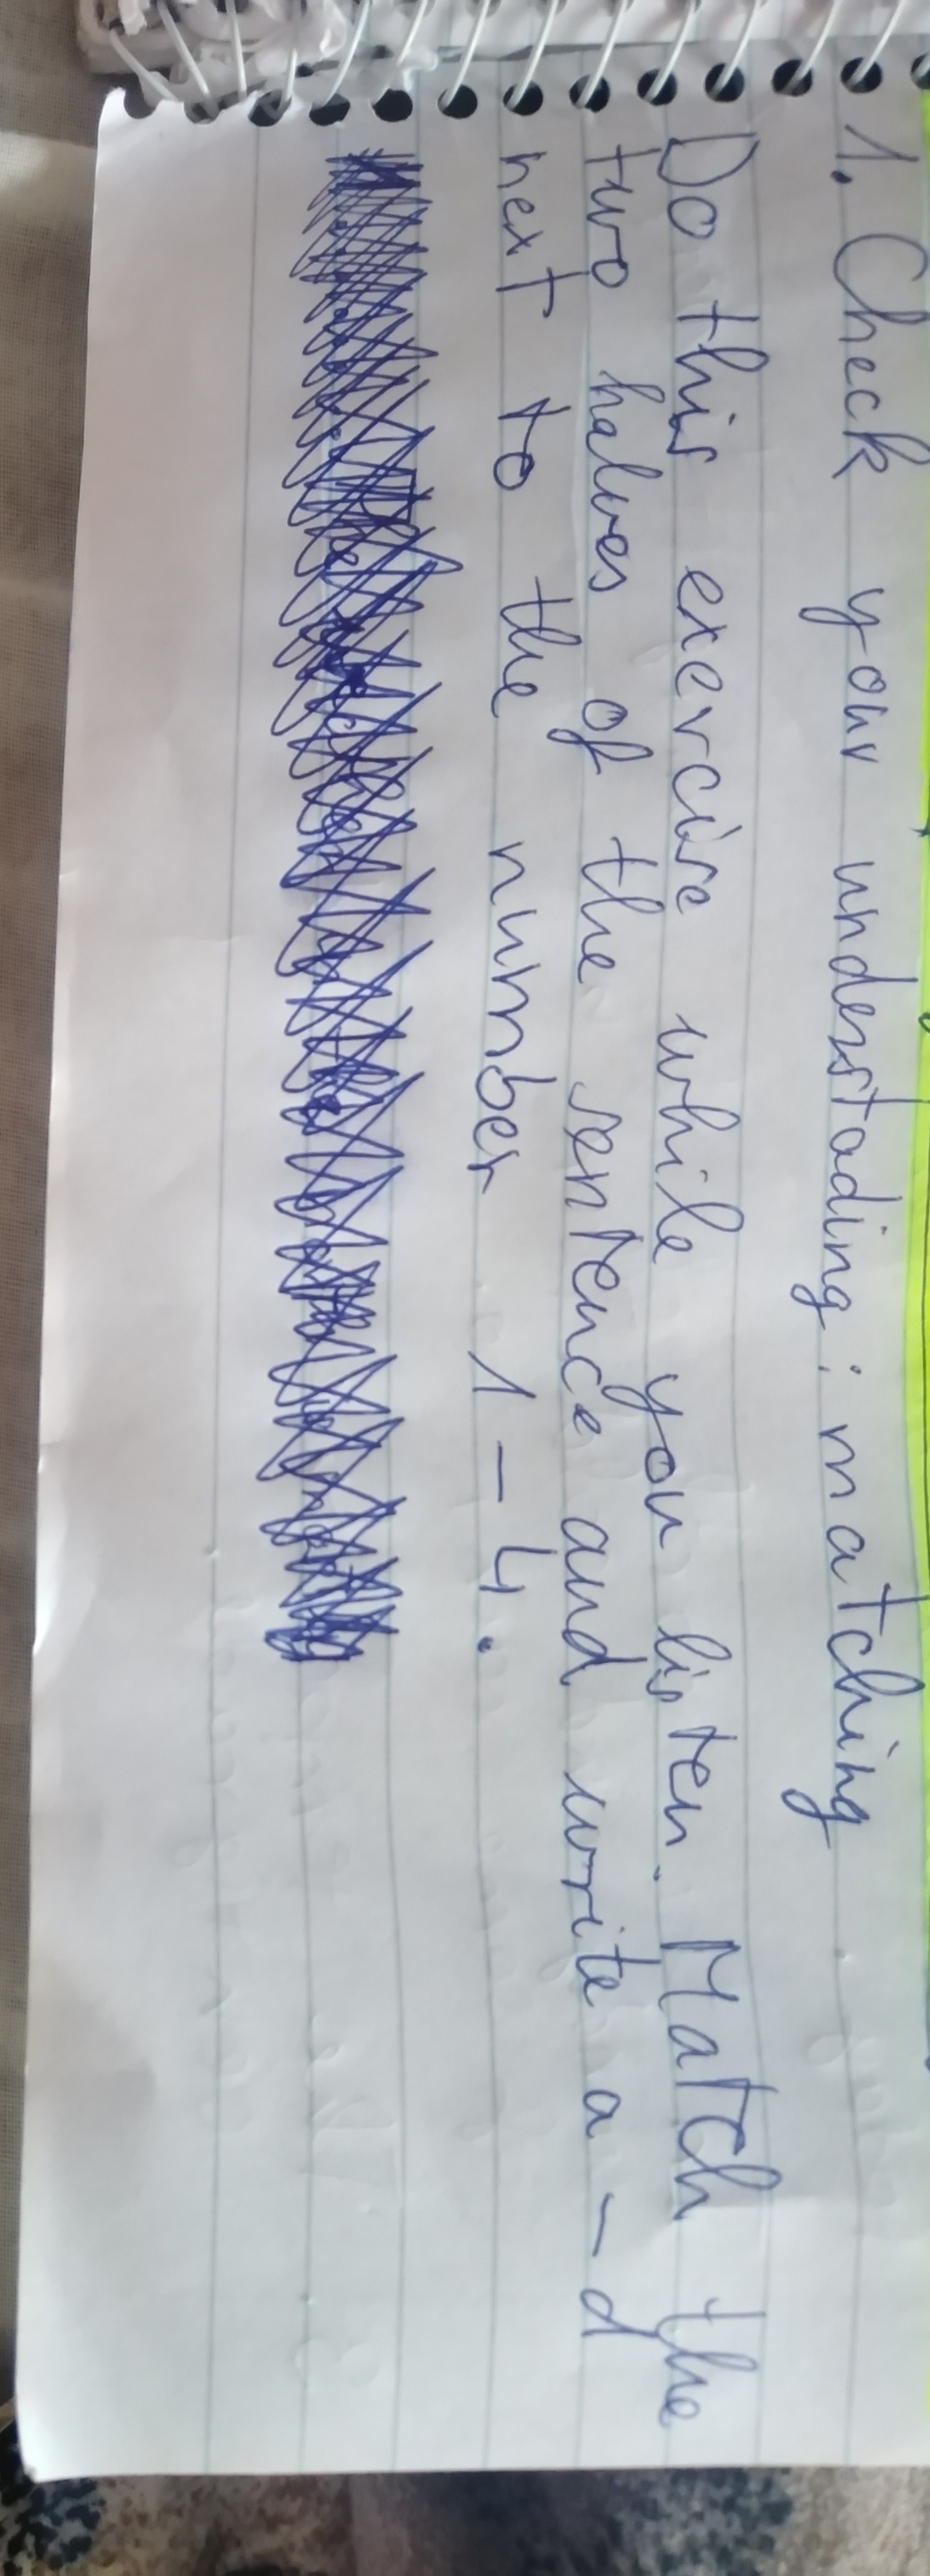 1. Check your understading: matching
Do this exercise while you listen. Match the
two halves of the sentence and write a - d
next to the number 1 - 4.